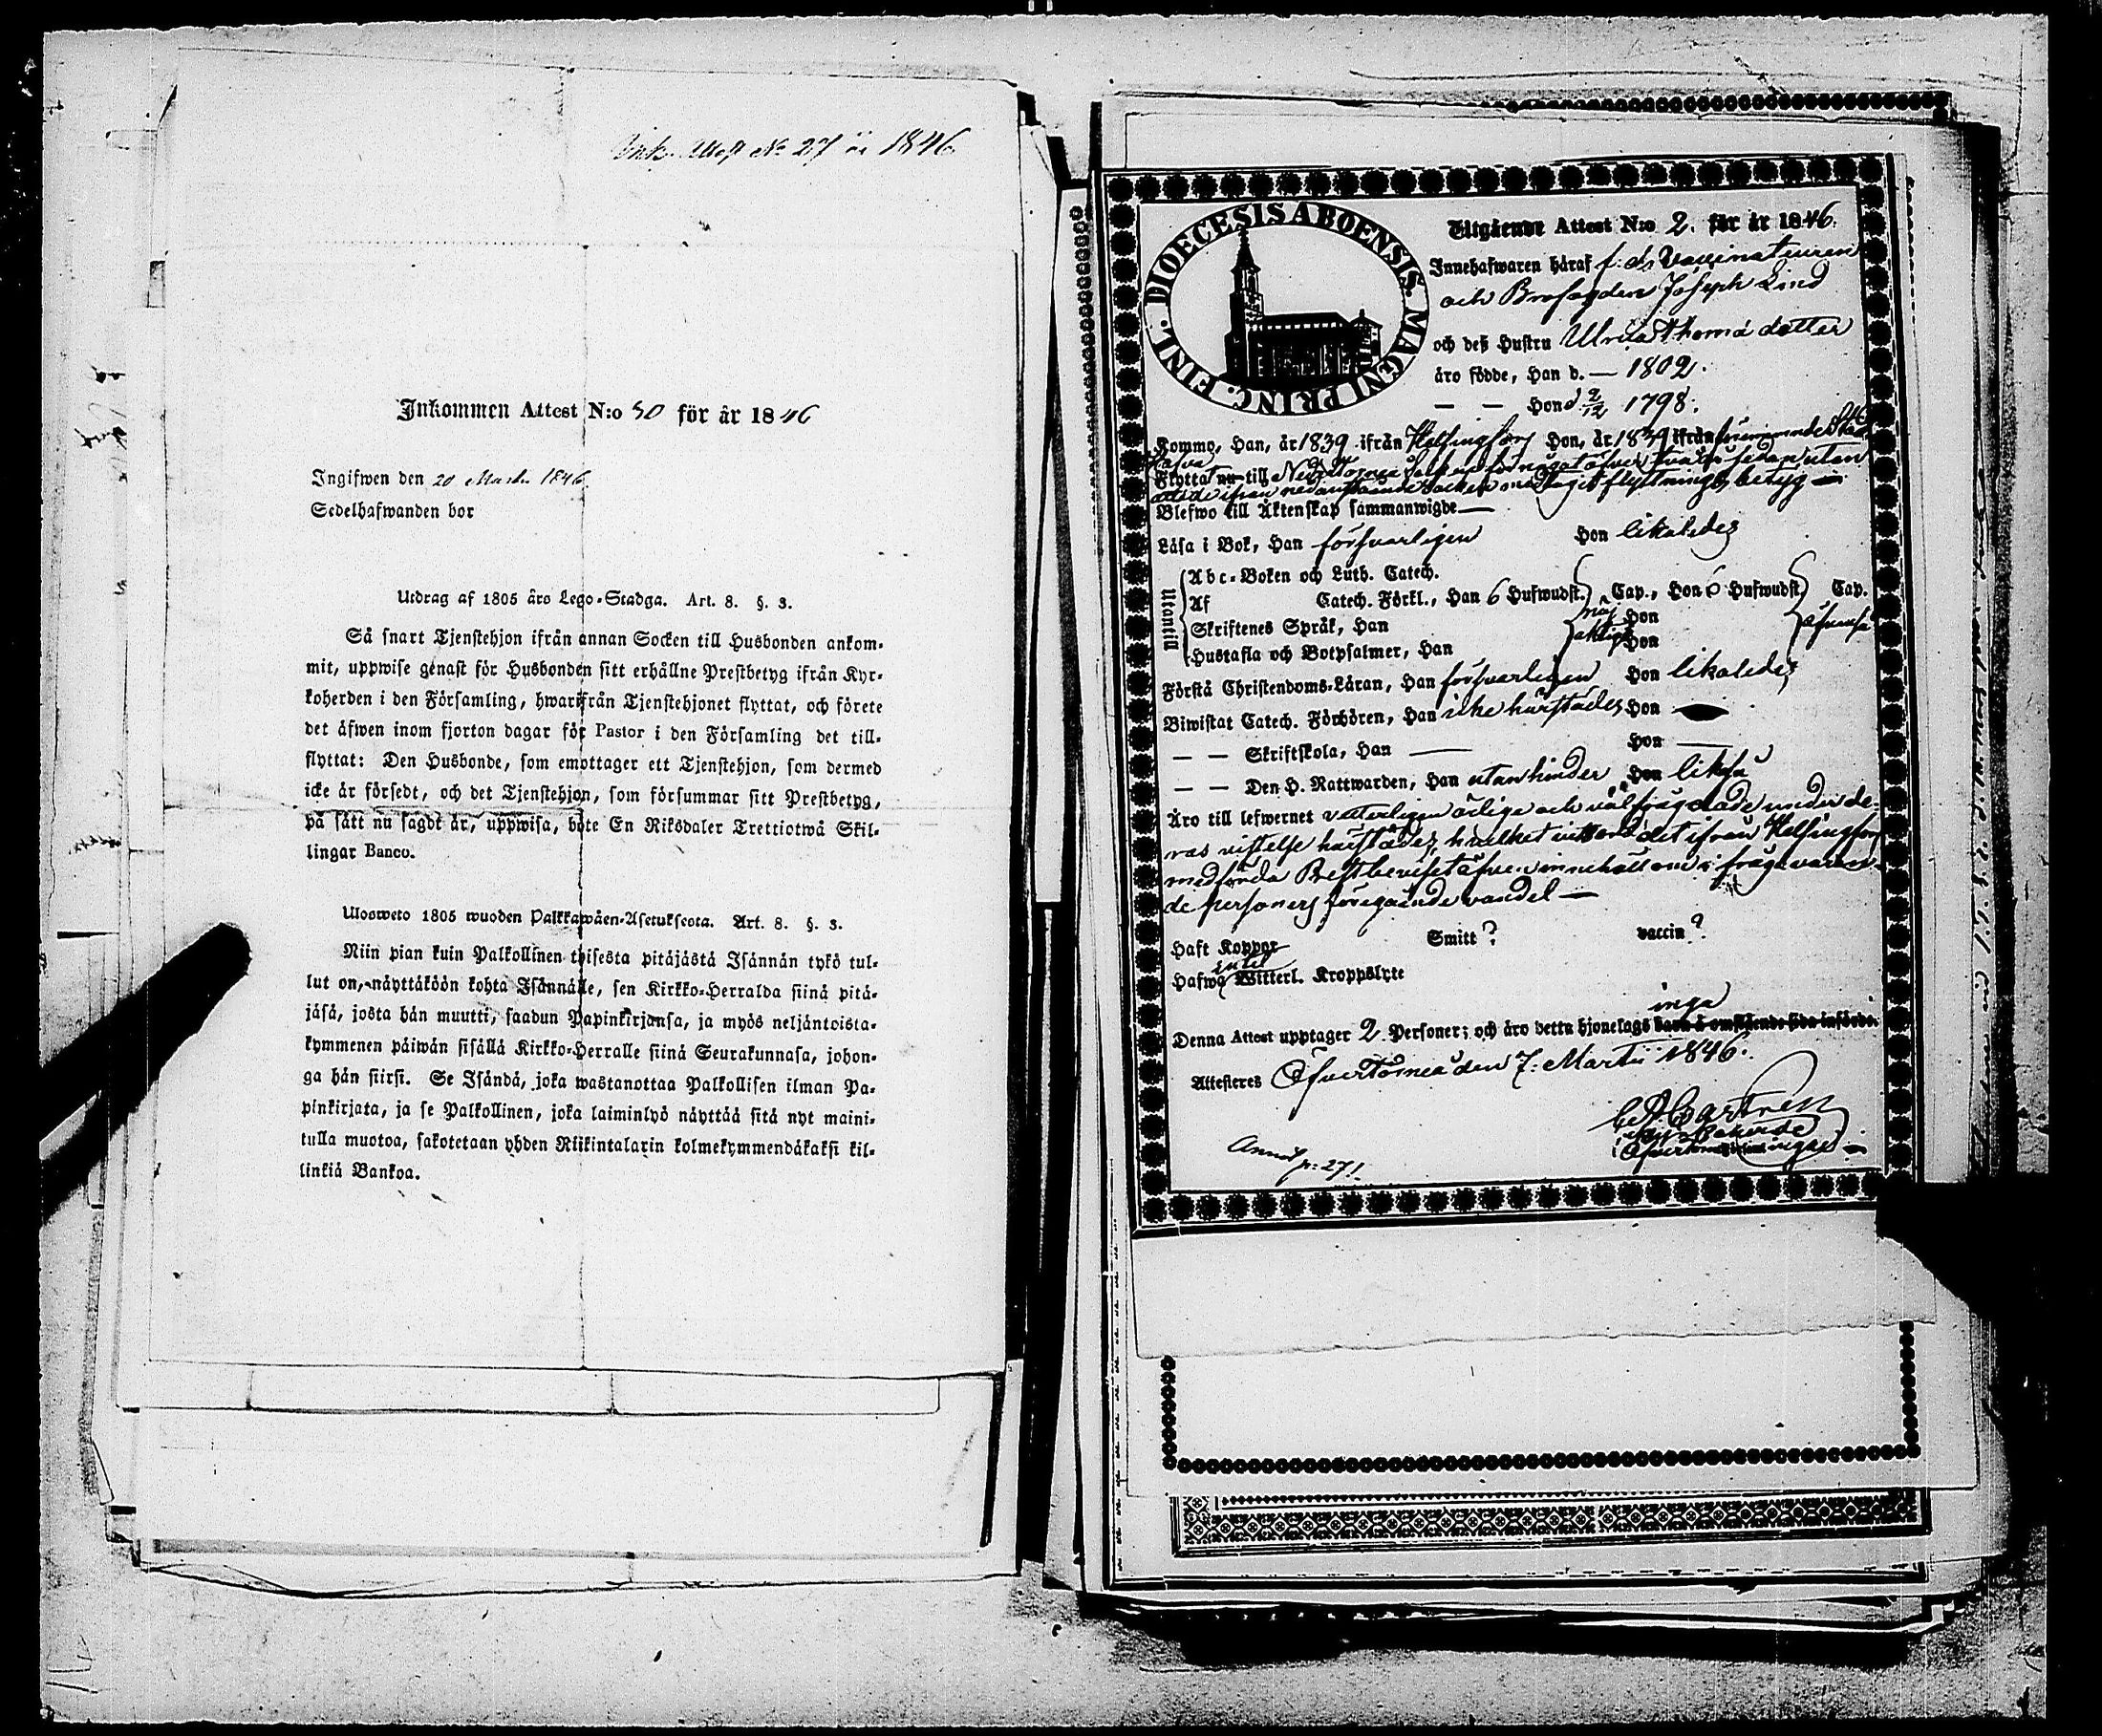 Ink. Attest No 27 år 1846
Inkommen Attest N:o 50 för år 1846
Ingifwen den 20 Martii 1846
Sedelhafwanden bor
Utdrag af 1805 års Lego-Stadga. Art. 8. §. 3.
Så snart Tjenstehjon ifrån annan Socken till Husbonden ankom-
mit, uppwise genast för Husbonden sitt erhållne Prestbetyg ifrån Kyr-
koherden i den Församling, hwarifrån Tjenstehjonet flyttat, och förete
det äfwen inom fjorton dagar för Pastor i den Församling det till-
flyttat: Den Husbonde, som emottager ett Tjenstehjon, som dermed
icke är försedt, och det Tjenstehjon, som försummar sitt Prestbetyg,
på sätt nu sagdt är, uppwisa, böte En Riksdaler Trettiotwå Skil-
lingar Banco.
Ulosweto 1805 wuoden Palkkawäen-Asetuksesta. Art. 8. §. 3.
Niin pian kuin Palkollinen toisesta pitäjästä Isännän tykö tul-
lut on, näyttäköön kohta Isännälle, sen Kirkko-Herralda siinä pitä-
jäsä, josta hän muutti, saadun Papinkirjansa, ja myös neljäntoista-
kymmenen päiwän sisällä Kirkko-Herralle siinä Seurakunnasa, johon-
ga hän siirsi. Se Isändä, joka wastanottaa Palkollisen ilman Pa-
pinkirjata, ja se Palkollinen, joka laiminlyö näyttää sitä nyt maini-
tulla muotoa, sakotetaan yhden Riikintalarin kolmekymmendäkaksi kil-
linkiä Bankoa.
DIOECESIS ABOENSIS. MAGNI PRINC. FINL.
Utgående Attest N:o 2. för år 1846.
Innehafwaren häraf f: ds Vaccinateuren
och Brofogden Joseph Lind
och deß Hustru Ulrica Thoma dotter
äro födde, Han d. — 1802.
— — Hon d. 2/12 1798.
Kommo, Han, år 1839 ifrån Helsingfors Hon, år 1839 ifrån
Flytta nu till Ned. Torneå för något öfver två år sedan utan
flyttnings betyg
Blefwo till Äktenskap sammanwigde —
Läsa i Bok, Han försvarligen Hon likaledes
Utantill
Abc-Boken och Luth. Catech.
Af Catech. Förkl., Han 6 Hufwudst. Cap., Hon 6 Hufwudst. Cap.
Skriftenes Språk, Han Hon
Hustafla och Botpsalmer, Han Hon
Förstå Christendoms-Läran, Han försvarligen Hon likaledes
Biwistat Catech. Förhören, Han icke härstädes Hon —
— — Skriftskola, Han — Hon —
— — Den H. Nattwarden, Han utan hinder Hon likaså
Äro till lefwernet vetterligen ärlige och välfrägdade under de-
ras vistelse härstädes, hvilket vittsord det ifrån Helsingfors
medförda Prestbeviset äfven innehåll om i fråga varan-
de personers föregående vandel —
Haft Koppor Smitt? vaccin?
Hafwa Witterl. Kroppslyte
inga
Denna Attest upptager 2 Personer; och äro detta hjonelags barn å omstående sida införda.
Attesteres Öfvertorneå den 7: Martii 1846.
Annot p: 271.